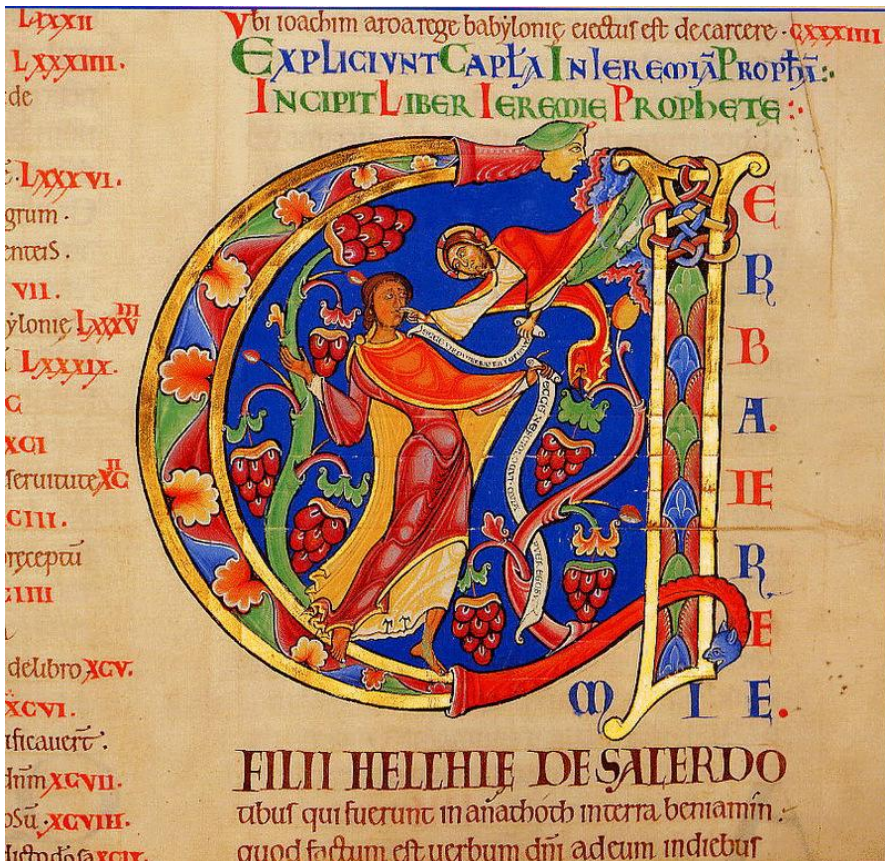 LXXXII
LXXXIIII.
de
LXXXVI.
grum.
VII.
ẏlonię LXXXV III
LXXXIX.
C
XCI
seruitute XC II
CIII.
pręceptū
delibro XCV.
XCVI.
ificauert̄.
XCVII.
XCVIII.
Vbi ioachim aroa rege babẏlonię eiectus est de carcere. CXXXIIII
EXPLICIVNT CAPŁA IN IEREMIĀ PROPħĀ:.
INCIPIT LIBER IEREMIE PROPHETE:.
V
E
R
B
A.
IE
R
E
M I E.
FILII HELCHIĘ DE SACERDO
tibus qui fuerunt in anathoth interra beniamin:
quod factum est uerbum dn̄i ad eum indiebus